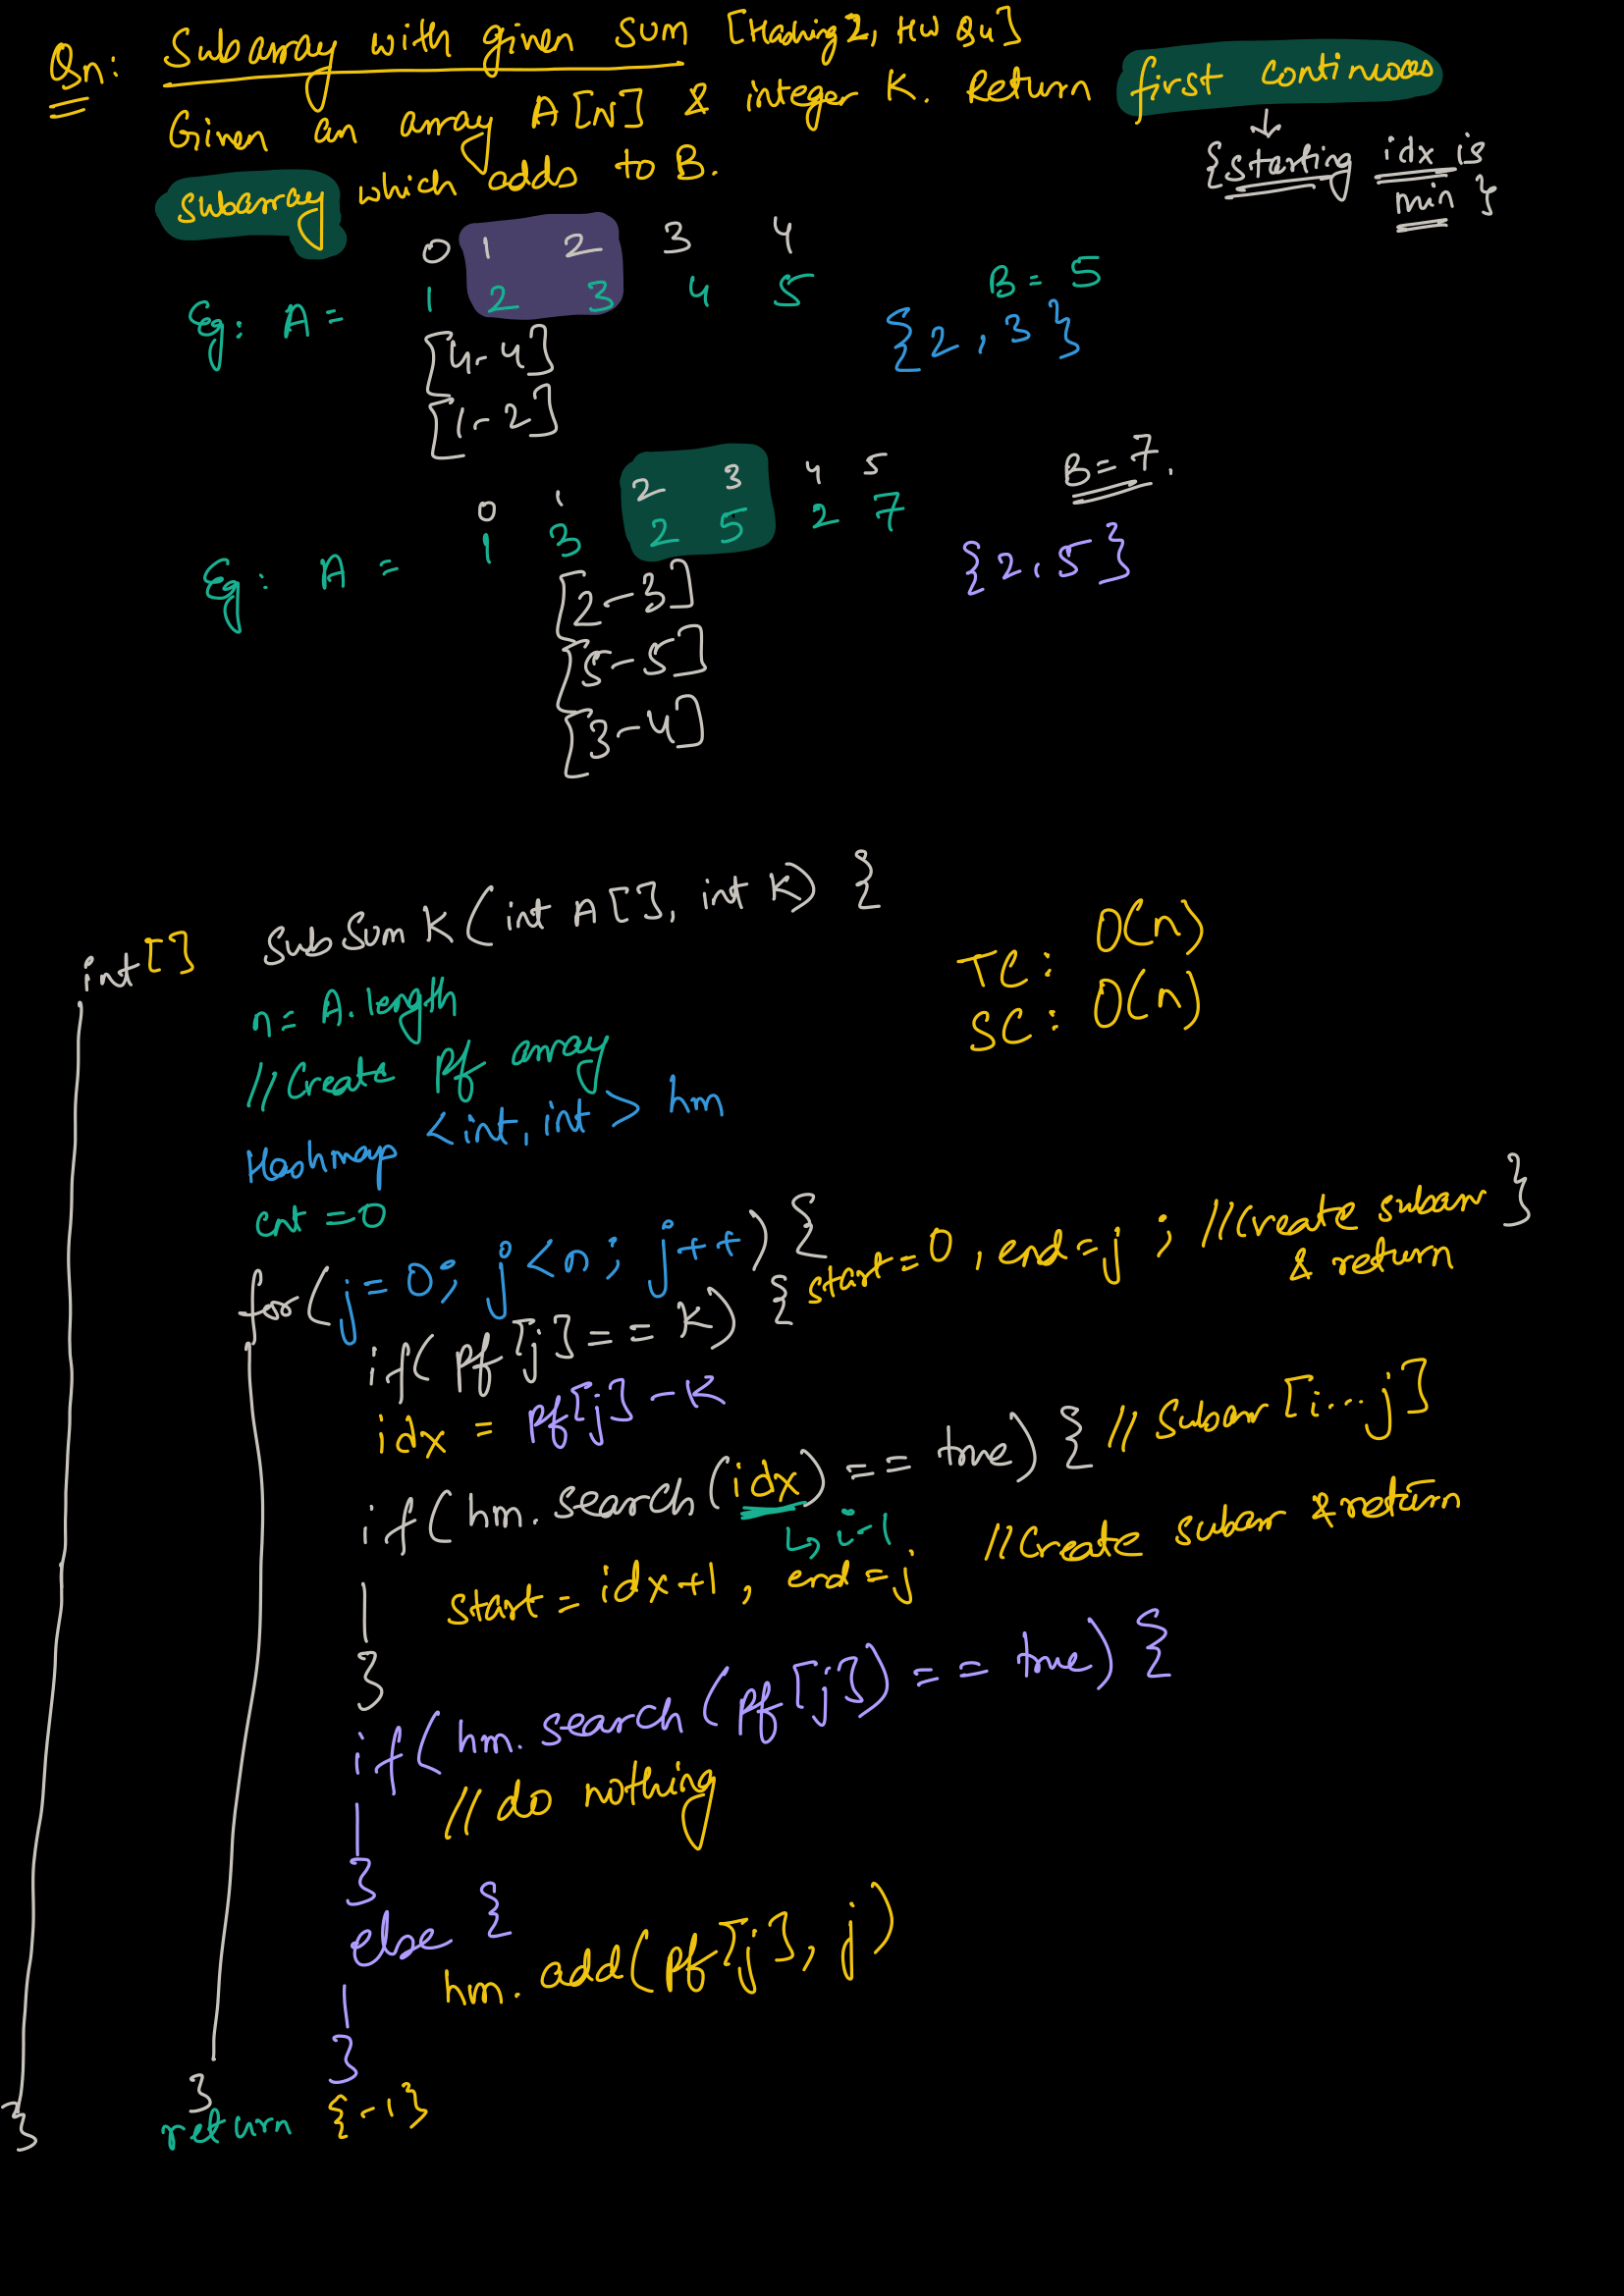 Qn: Subarray with given sum [Hashing 2, HW Q4]
Given an array A[N] & integer K. Return first continuous
↓
{starting idx is
min}
subarray which adds to B.
0 1 2 3 4
Eg: A = 1 2 3 4 5 B = 5
{2, 3}
[4-4]
[1-2]
0 1 2 3 4 5
Eg: A = 1 3 2 5 2 7 B = 7.
{2, 5}
[2-3]
[5-5]
[3-4]
int[] SubSumK(int A[], int K) {
TC: O(n)
SC: O(n)
n = A.length
//Create pf array
Hashmap <int, int> hm
cnt = 0
for(j=0; j<n; j++) {
if(pf[j] == K) { start=0, end=j; //Create subarr }
& return
idx = pf[j] - K
if(hm.search(idx) == true) { // Subarr [i...j]
↳ i-1
start = idx+1, end=j //Create subarr & return
}
if(hm.search(pf[j]) == true) {
//do nothing
}
else {
hm.add(pf[j], j)
}
}
return {-1}
}